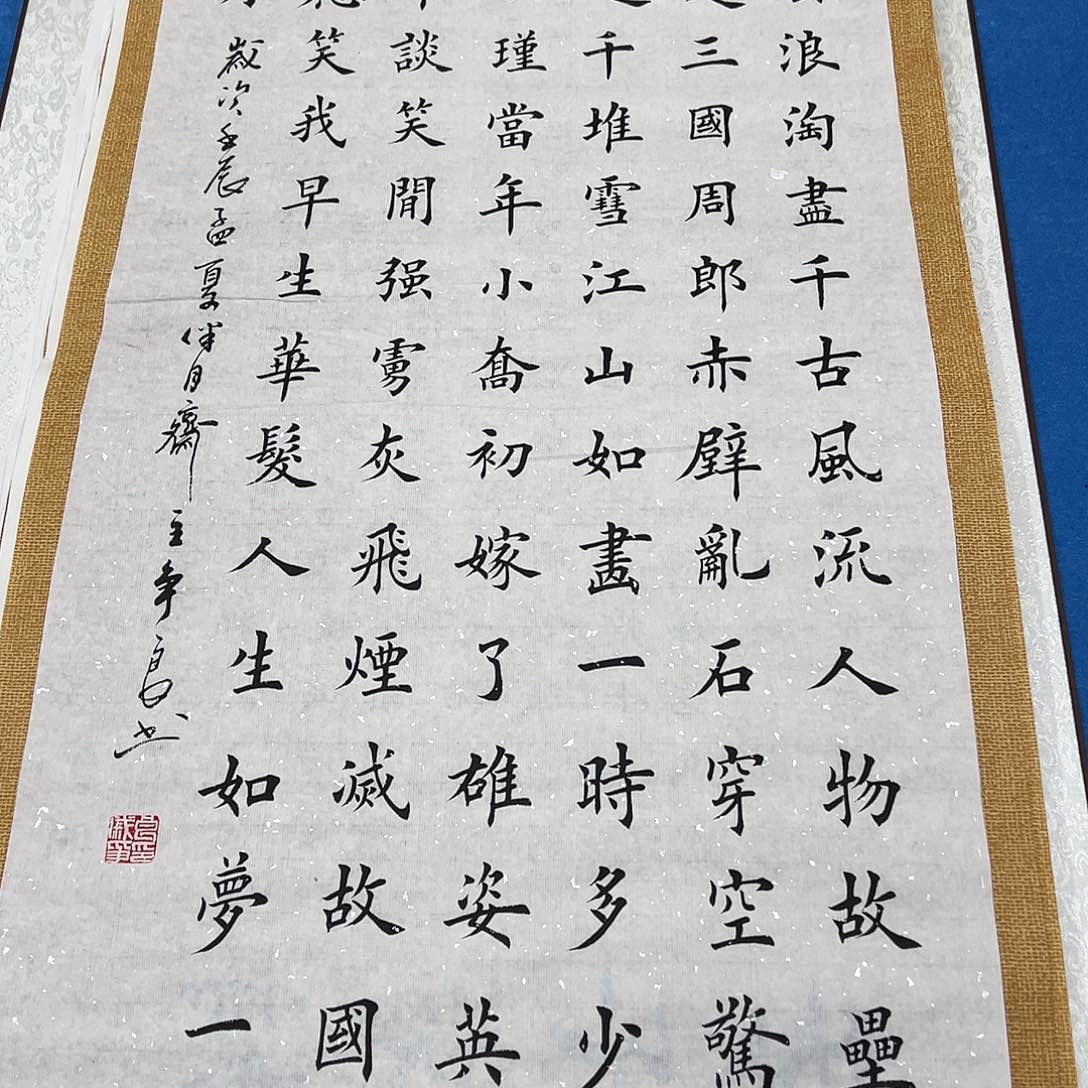 浪淘盡千古風流人物故壘
三國周郎赤壁亂石穿空驚
千堆雪江山如畫一時多少
瑾當年小喬初嫁了雄姿英
談笑閒强虜灰飛煙滅故國
笑我早生華髮人生如夢一
歲次壬辰孟夏伴月齋主爭良书